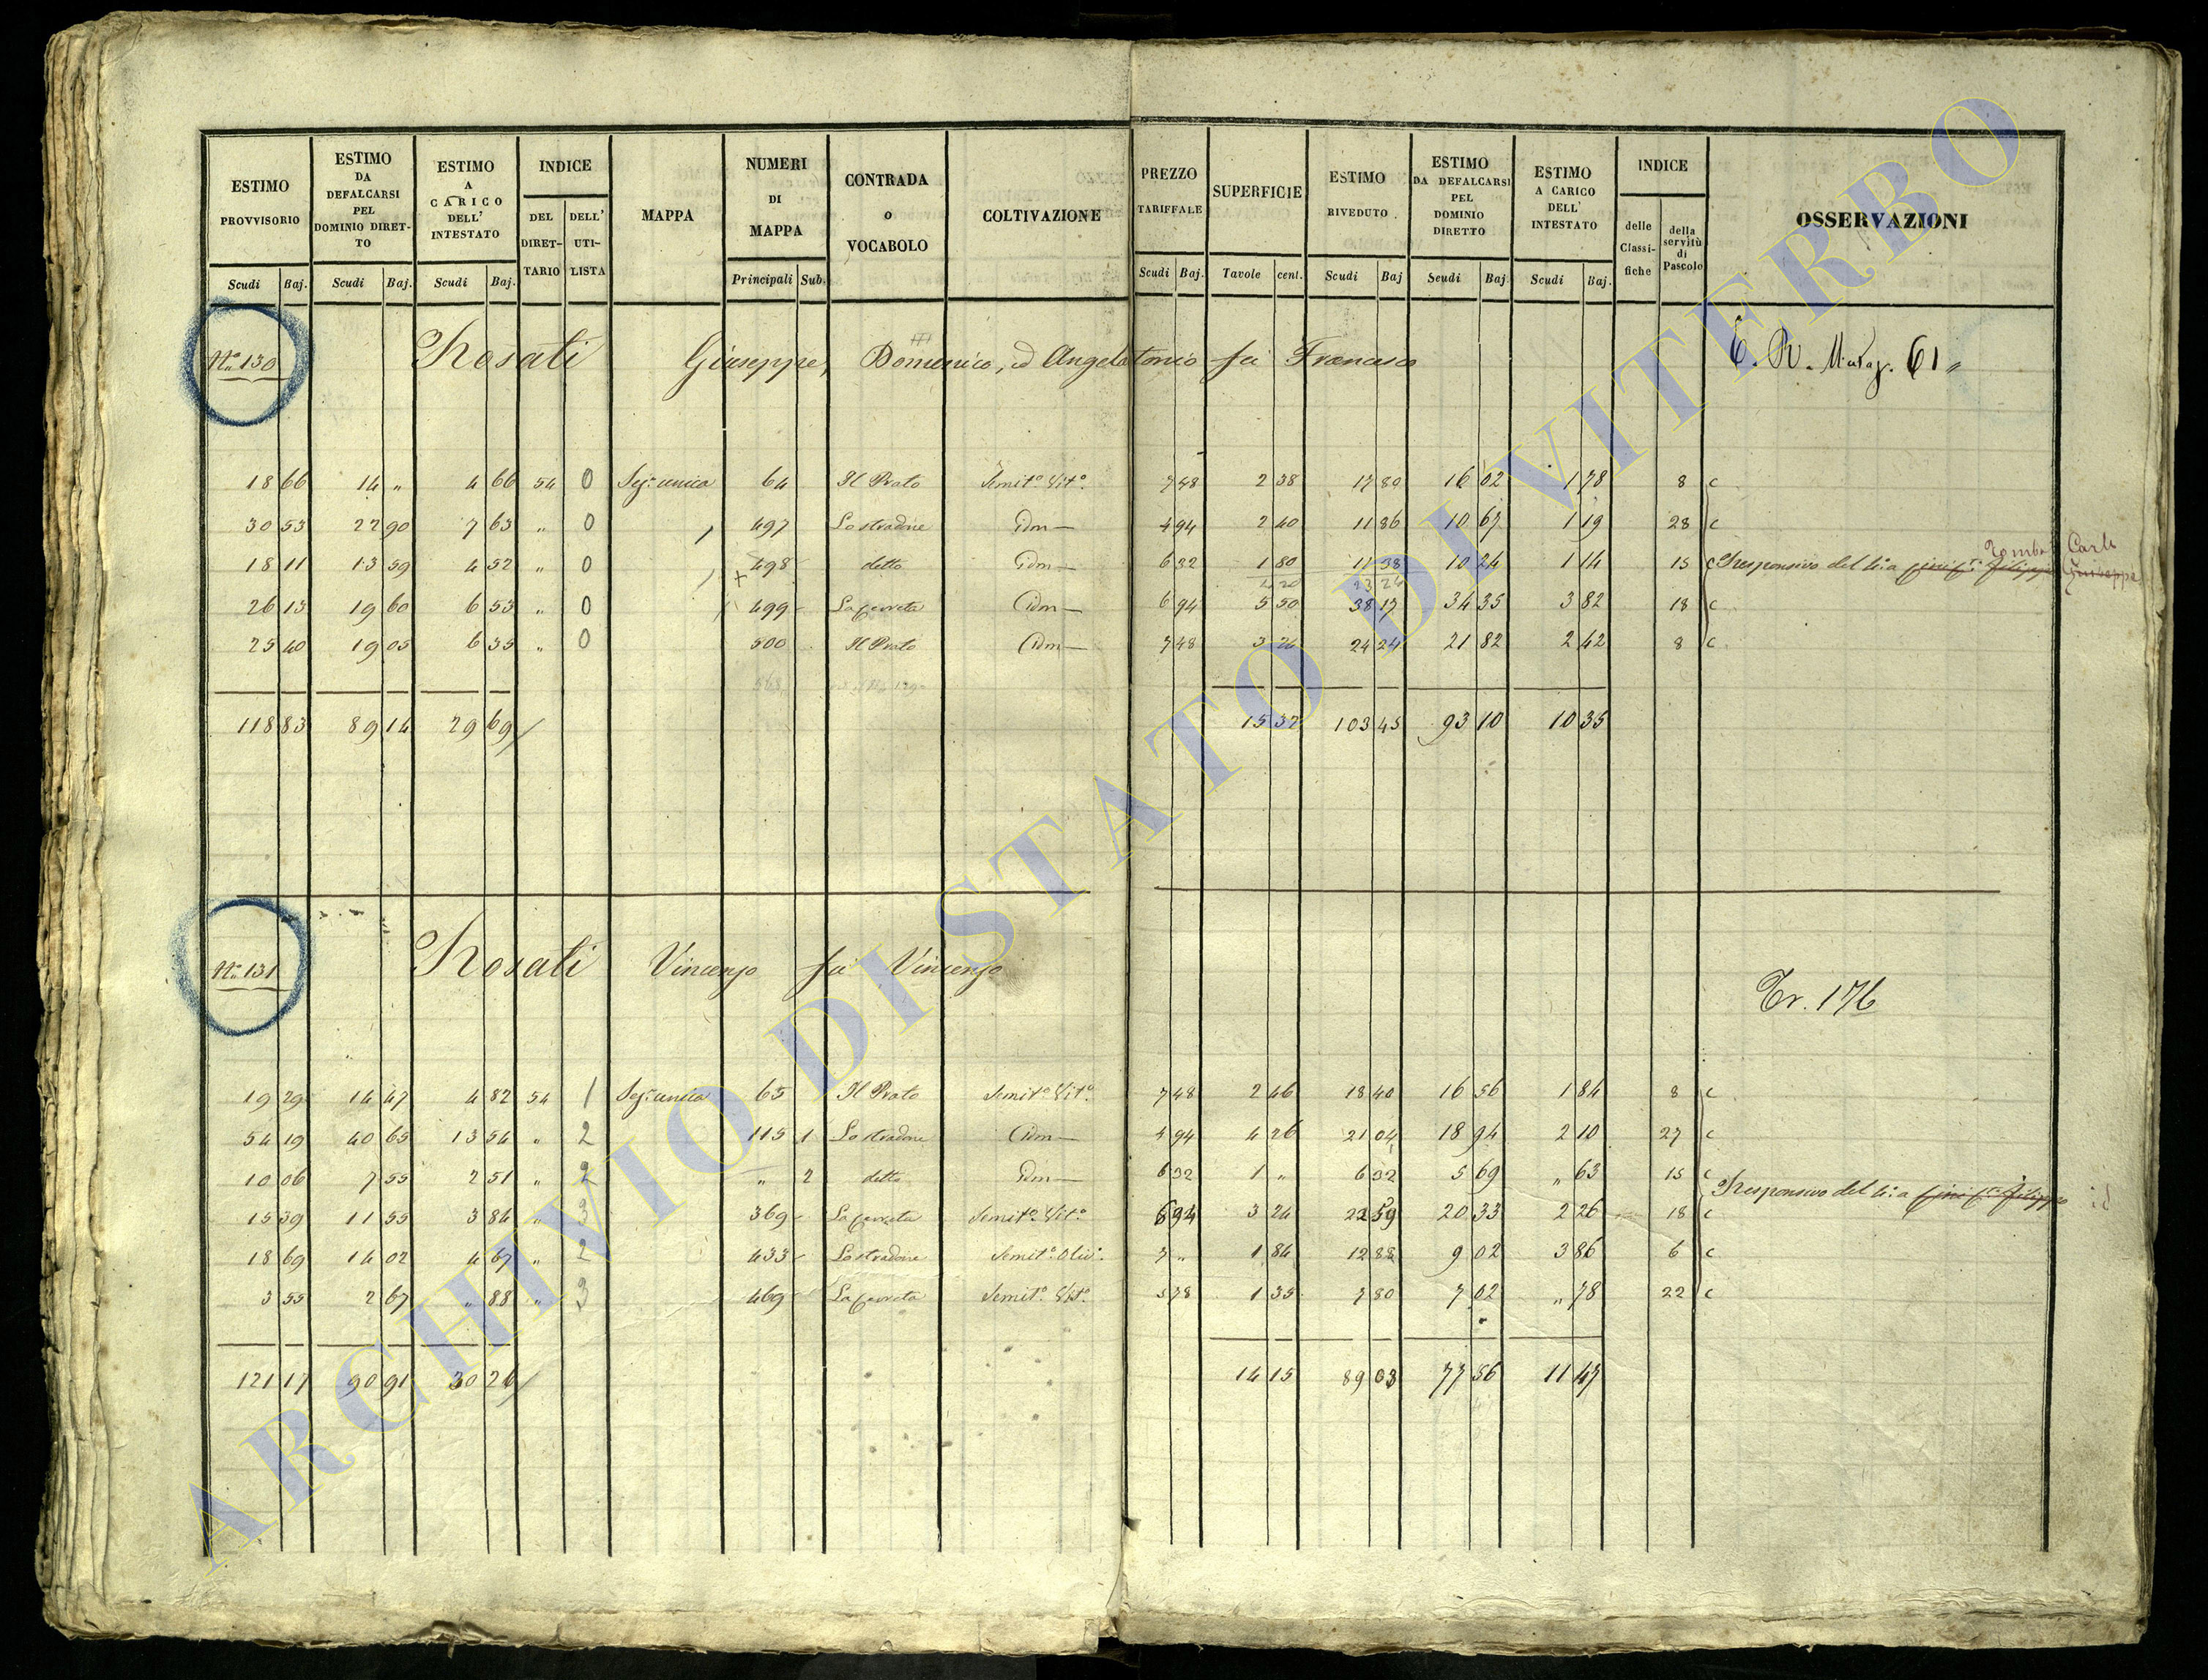 ESTIMO PROVVISORIO | ESTIMO DA DEFALCARSI PEL DOMINIO DIRET-TO | ESTIMO A CARICO DELL' INTESTATO | INDICE | MAPPA | NUMERI DI MAPPA | CONTRADA o VOCABOLO | COLTIVAZIONE | PREZZO TARIFFALE | SUPERFICIE | ESTIMO RIVEDUTO | ESTIMO DA DEFALCARSI PEL DOMINIO DIRETTO | ESTIMO A CARICO DELL' INTESTATO | INDICE | OSSERVAZIONI
DEL DIRET-TARIO | DELL' UTI-LISTA | delle Classi-fiche | della servitù di Pascolo
Scudi Baj. | Scudi Baj. | Scudi Baj. | Principali Sub. | Scudi Baj. | Tavole cent. | Scudi Baj | Scudi Baj | Scudi Baj.
N.° 130 Rosati Giuseppe, Domenico, ed Angelantonio fu Francesco 61
18 66 | 14 " | 4 66 | 54 | 0 | Sez. unica | 64 | Il Prato | Semit.° Vit.° | 7 48 | 2 38 | 17 80 | 16 02 | 1 78 | 8 | c
30 53 | 22 90 | 7 63 | " | 0 | 497 | Lo stradone | Idm | 4 94 | 2 40 | 11 86 | 10 67 | 1 19 | 28 | c
18 11 | 13 59 | 4 52 | " | 0 | + 498 | detto | Idm | 6 32 | 1 80 | 11 38 | 10 24 | 1 14 | 15 | c Responsivo del 4.° a Carlo Giuseppe
23 24
26 13 | 19 60 | 6 53 | " | 0 | 499 | Idm | 6 94 | 5 50 | 38 17 | 34 35 | 3 82 | 18 | c
25 40 | 19 05 | 6 35 | " | 0 | 500 | Il Prato | Idm | 7 48 | 3 24 | 24 24 | 21 82 | 2 42 | 8 | c
118 83 | 89 14 | 29 69 | 15 32 | 103 45 | 93 10 | 10 35
N.° 131 Rosati Vincenzo fu Vincenzo
Tr. 176
19 29 | 14 47 | 4 82 | 54 | 1 | Sez. unica | 65 | Il Prato | Semit.° Vit.° | 7 48 | 2 46 | 18 40 | 16 56 | 1 84 | 8 | c
54 19 | 40 65 | 13 54 | " | 2 | 115 1 | Lo stradone | Idm | 4 94 | 4 26 | 21 04 | 18 94 | 2 10 | 27 | c
10 06 | 7 55 | 2 51 | " | 2 | " 2 | detto | Idm | 6 32 | 1 " | 6 32 | 5 69 | " 63 | 15 | c
Responsivo del 4.° a id
15 39 | 11 55 | 3 84 | " | 3 | 369 | Semit.° Vit.° | 6 94 | 3 24 | 22 59 | 20 33 | 2 26 | 18 | c
18 69 | 14 02 | 4 67 | " | 2 | 433 | Lo stradone | Semit.° Oliv. | 7 " | 1 84 | 12 88 | 9 02 | 3 86 | 6 | c
3 55 | 2 67 | " 88 | " | 3 | 469 | Semit.° Vit.° | 5 78 | 1 35 | 7 80 | 7 02 | " 78 | 22 | c
121 17 | 90 91 | 30 26 | 14 15 | 89 03 | 77 56 | 11 47
ARCHIVIO DI STATO DI VITERBO